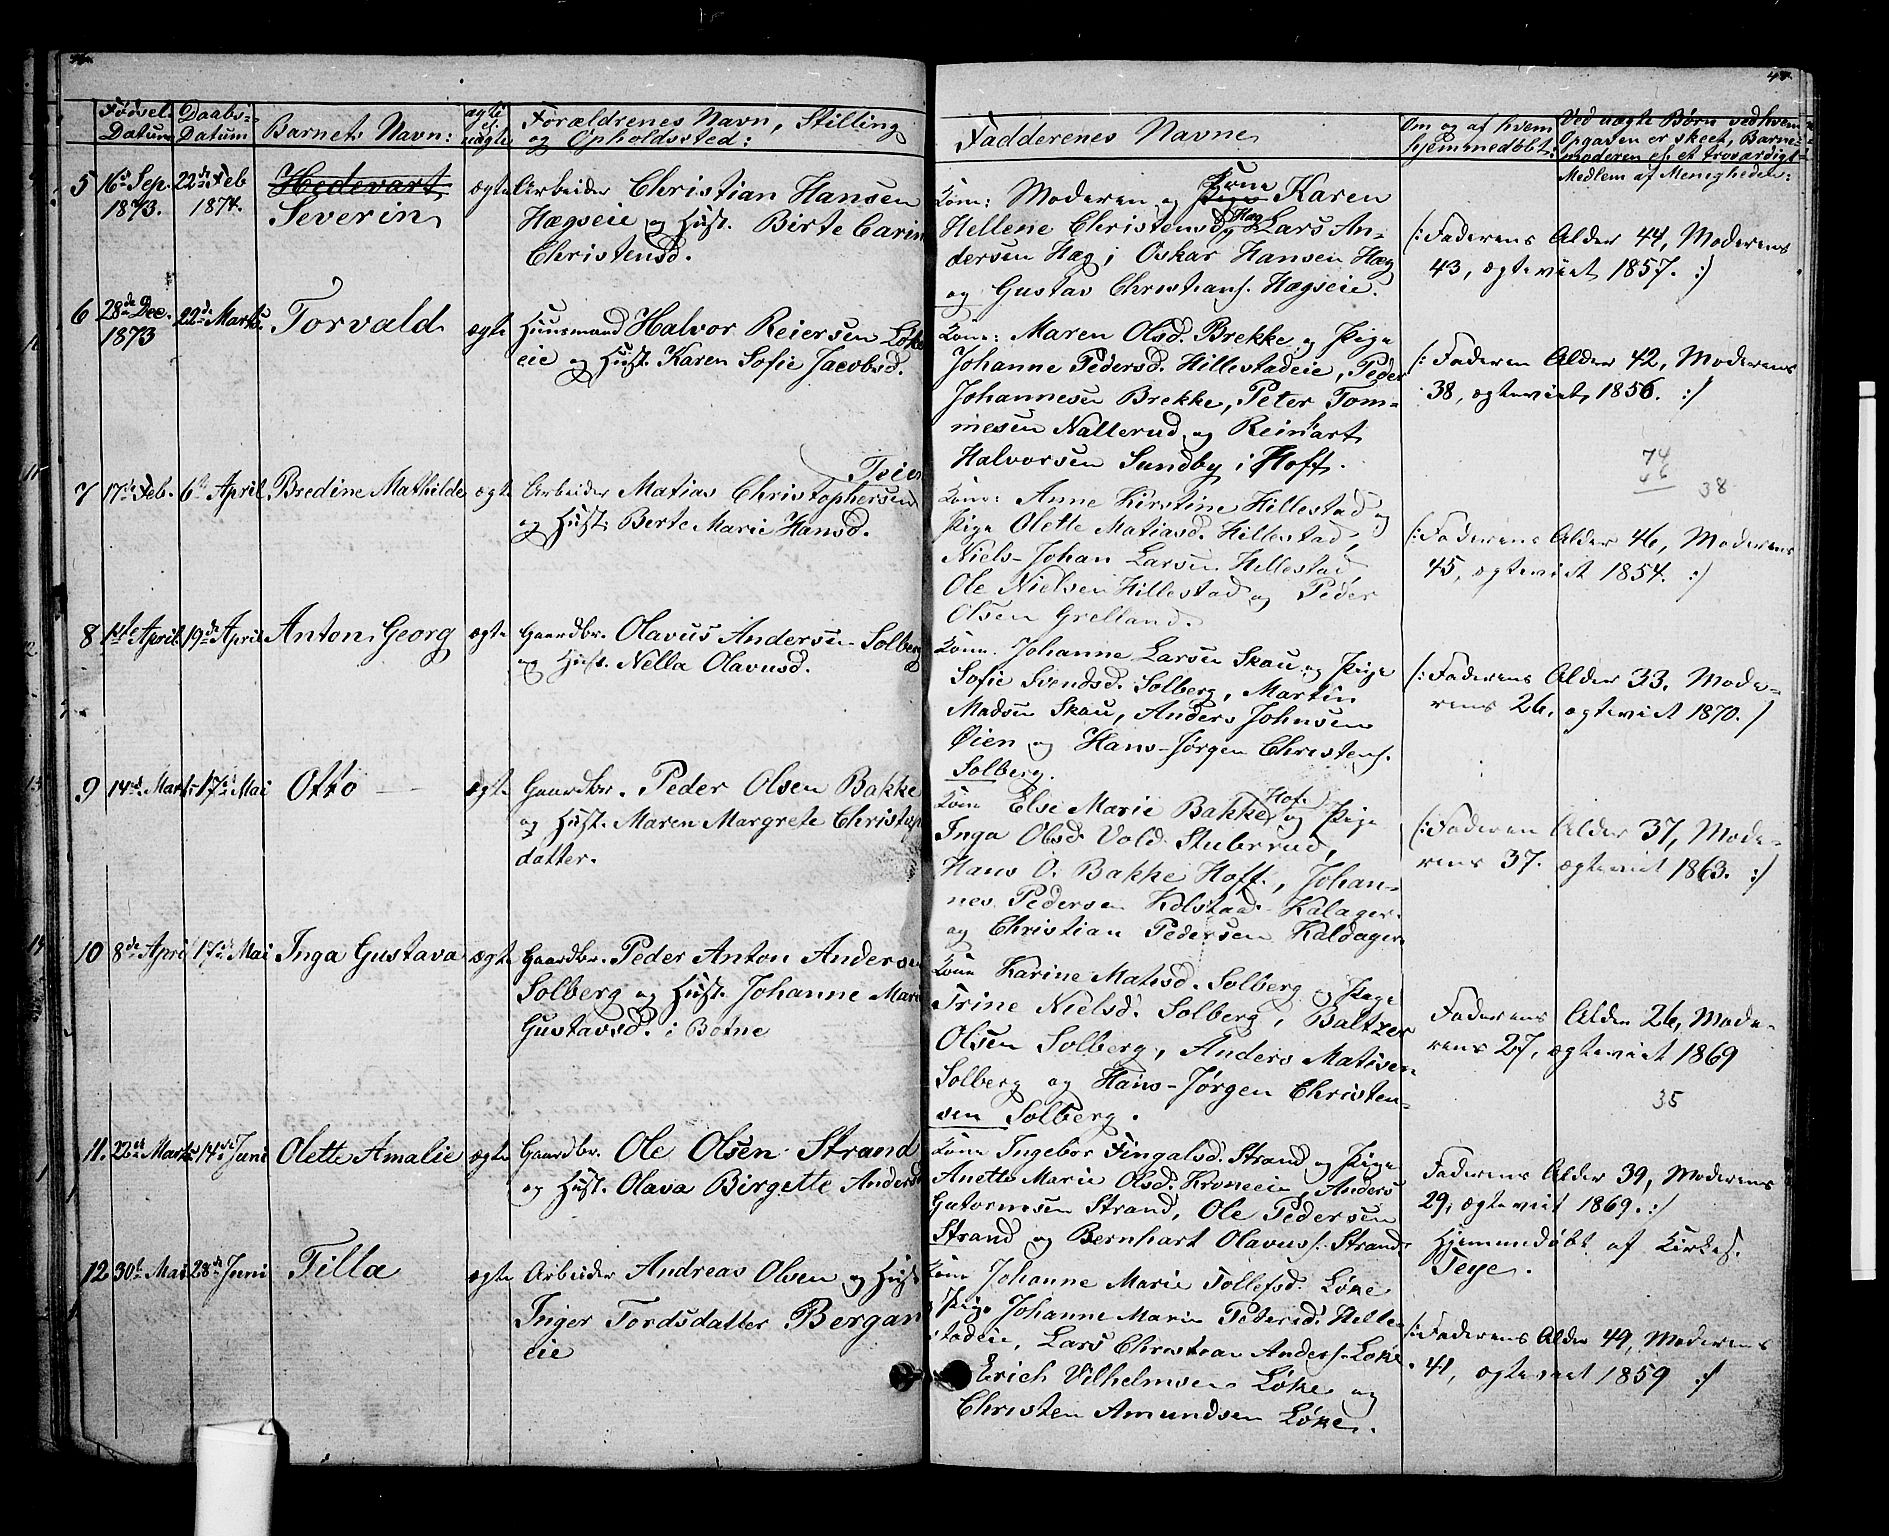 47.
Fødsel Datum
Daabs- Datum
Barnets Navn:
ægte el. uægte
Forældrenes Navn, Stilling og Opholdssted:
Faddernes Navne
Om og af hvem hjemmedøbt:
Ved uægte Børn ved hvem Opgaven er skeet, Barnemoderen el. et troværdigt Medlem af Menigheden:
5
16de Sep. 1873.
22de Feb 1874.
Hedevart
Severin
ægte
Arbeider Christian Hansen
Hægseie og Hust. Birte Carin
Christensd.
Kone: Moderen og Pige Kone Karen
Hellene Christensd. Hæg, Lars An-
dersen Hæg, Oskar Hansen Hæg
og Gustav Christians. Hægseie.
(: Faderens Alder 44, Moderens
43, ægteviet 1857. :)
6
28de Dec. 1873
22de Marts
Torvald
ægte
Huusmand Halvor Reiersen Løke
eie og Hust. Karen Sofie Jacobsd.
Kone: Maren Olsd. Brekke og Pige
Johanne Pedersd. Hillestadeie, Peder
Johannesen Brekke, Peter Tom-
mesen Nallerud og Reinart
Halvorsen Sundby i Hoff.
(: Faderen Alder 42, Moderens
38, ægteviet 1856. :)
74
38
7
17de Feb.
6te April
Bredine Mathilde
ægte
Arbeider Matias Christophersen
og Hust. Berte Marie Hansd.
Kone: Anne Kirstine Hillestad og
Pige Olette Matiasd. Hillestad,
Niels Johan Larsen Hillestad,
Ole Nielsen Hillestad og Peder
Olsen Grelland.
(: Faderens Alder 46, Moderens
45, ægteviet 1854. :)
8
1ste April
19de April
Anton Georg
ægte
Gaardbr. Olavus Andersen Solberg
og Hust. Nella Olavusd.
Kone. Johanne Larsen Skau og Pige
Sofie Svendsd. Solberg, Martin
Madsen Skau, Anders Johnsen
Øien og Hans-Jørgen Christens.
Solberg.
(: Faderens Alder 33. Mode-
rens 26, ægteviet 1870. :)
9
14de Marts
17de Mai
Otto
ægte
Gaardbr. Peder Olsen Bakke
og Hust. Maren Margrete Christop
datter.
Kone Else Marie Bakke Hof. og Pige
Inga Olsd Vold Stuberud,
Hans O. Bakke Hoff., Johan-
nes Pedersen Kolstad Kalager
og Christian Pedersen Kaldager
(: Faderen Alder 37, Mode-
rens 37. ægteviet 1863. :)
10
8de April
17de Mai
Inga Gustava
ægte
Gaardbr. Peder Anton Andersen
Solberg og Hust. Johanne Marie
Gustavsd. i Botne
Kone Karine Matisd. Solberg og Pige
Trine Nielsd. Solberg, Baltzer
Olsen Solberg, Anders Matisen
Solberg og Hans-Jørgen Christen-
sen Solberg.
Faderens Alder 26, Mode-
rens 27, ægteviet 1869
35
11.
22de Marts
14de Juni
Olette Amalie
ægte
Gaardbr. Ole Olsen Strand
og Hust. Olava Birgette Andersd
Kone Ingebor Fingalsd. Strand og Pige
Anette Marie Olsd. Kroneeie, Anders
Gutormsen Strand, Ole Pedersen
Strand og Bernhart Olavus. Strand
Faderens Alder 39, Moderens
29, ægteviet 1869. :)
Hjemmedøbt af Kirkes.
Teye.
12
30te Mai
28de Juni
Tilla
ægte
Arbeider Andreas Olsen og Hust
Inger Tordsdatter Bergan
eie
Kone Johanne Marie Tollefsd. Løke
Pige Johanne Marie Petersd. Hille
stadeie, Lars Christian Anders. Løke
Erich Vilhelmsen Løke og
Christen Amundsen Løke.
(: Faderens Alder 49, Moderens
41, ægteviet 1859 :)